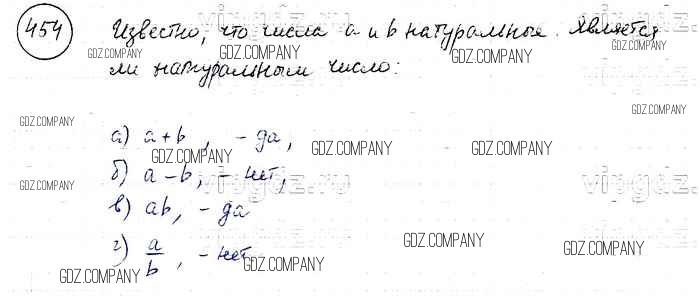 454 Известно, что числа a и b натуральные. Является
ли натуральным число:
а) a+b, - да,
б) a-b, - нет,
в) ab, - да
г) a/b, - нет
GDZ.COMPANY
GDZ.COMPANY
GDZ.COMPANY
GDZ.COMPANY
GDZ.COMPANY
GDZ.COMPANY
GDZ.COMPANY
GDZ.COMPANY
GDZ.COMPANY
GDZ.COMPANY
GDZ.COMPANY
GDZ.COMPANY
GDZ.COMPANY
GDZ.COMPANY